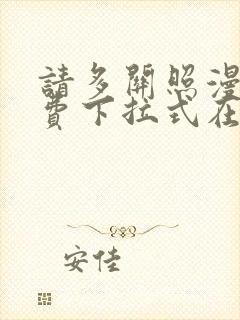 請多關照漫
費下拉式在
安佳